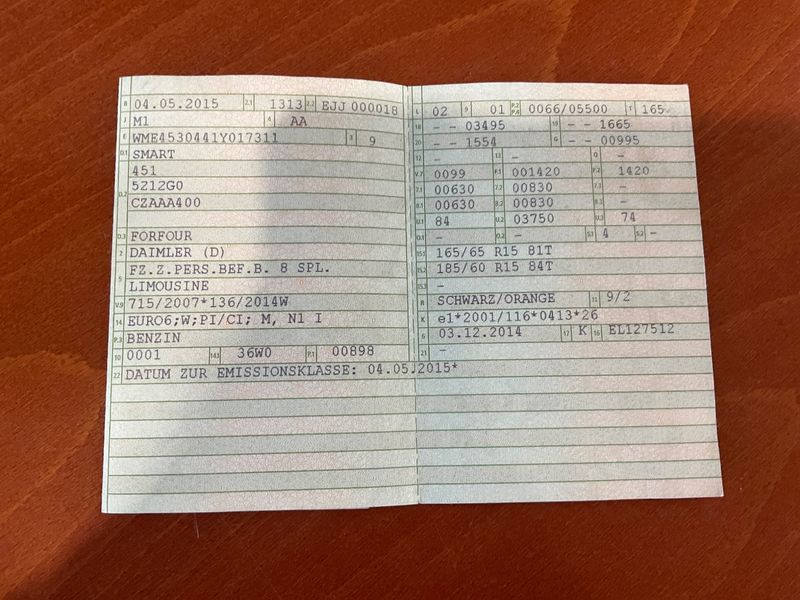 B 04.05.2015 2.1 1313 2.2 EJJ 000018
J M1 4 AA
E WME4530441Y017311 3 9
D.1 SMART
D.2 451
5Z12G0
CZAAA400
D.3 FORFOUR
2 DAIMLER (D)
5 FZ.Z.PERS.BEF.B. 8 SPL.
LIMOUSINE
V.9 715/2007*136/2014W
14 EURO6;W;PI/CI; M, N1 I
P.3 BENZIN
10 0001 14.1 36W0 P.1 00898
22 DATUM ZUR EMISSIONSKLASSE: 04.05.2015*
L 02 9 01 P.2 P.4 0066/05500 T 165
18 - - 03495 19 - - 1665
20 - - 1554 G - - 00995
12 - 13 - Q -
V.7 0099 F.1 001420 F.2 1420
7.1 00630 7.2 00830 7.3 -
8.1 00630 8.2 00830 8.3 -
U.1 84 U.2 03750 U.3 74
O.1 - O.2 - S.1 4 S.2 -
15.1 165/65 R15 81T
15.2 185/60 R15 84T
15.3 -
R SCHWARZ/ORANGE 11 9/2
K e1*2001/116*0413*26
6 03.12.2014 17 K 16 EL127512
21 -